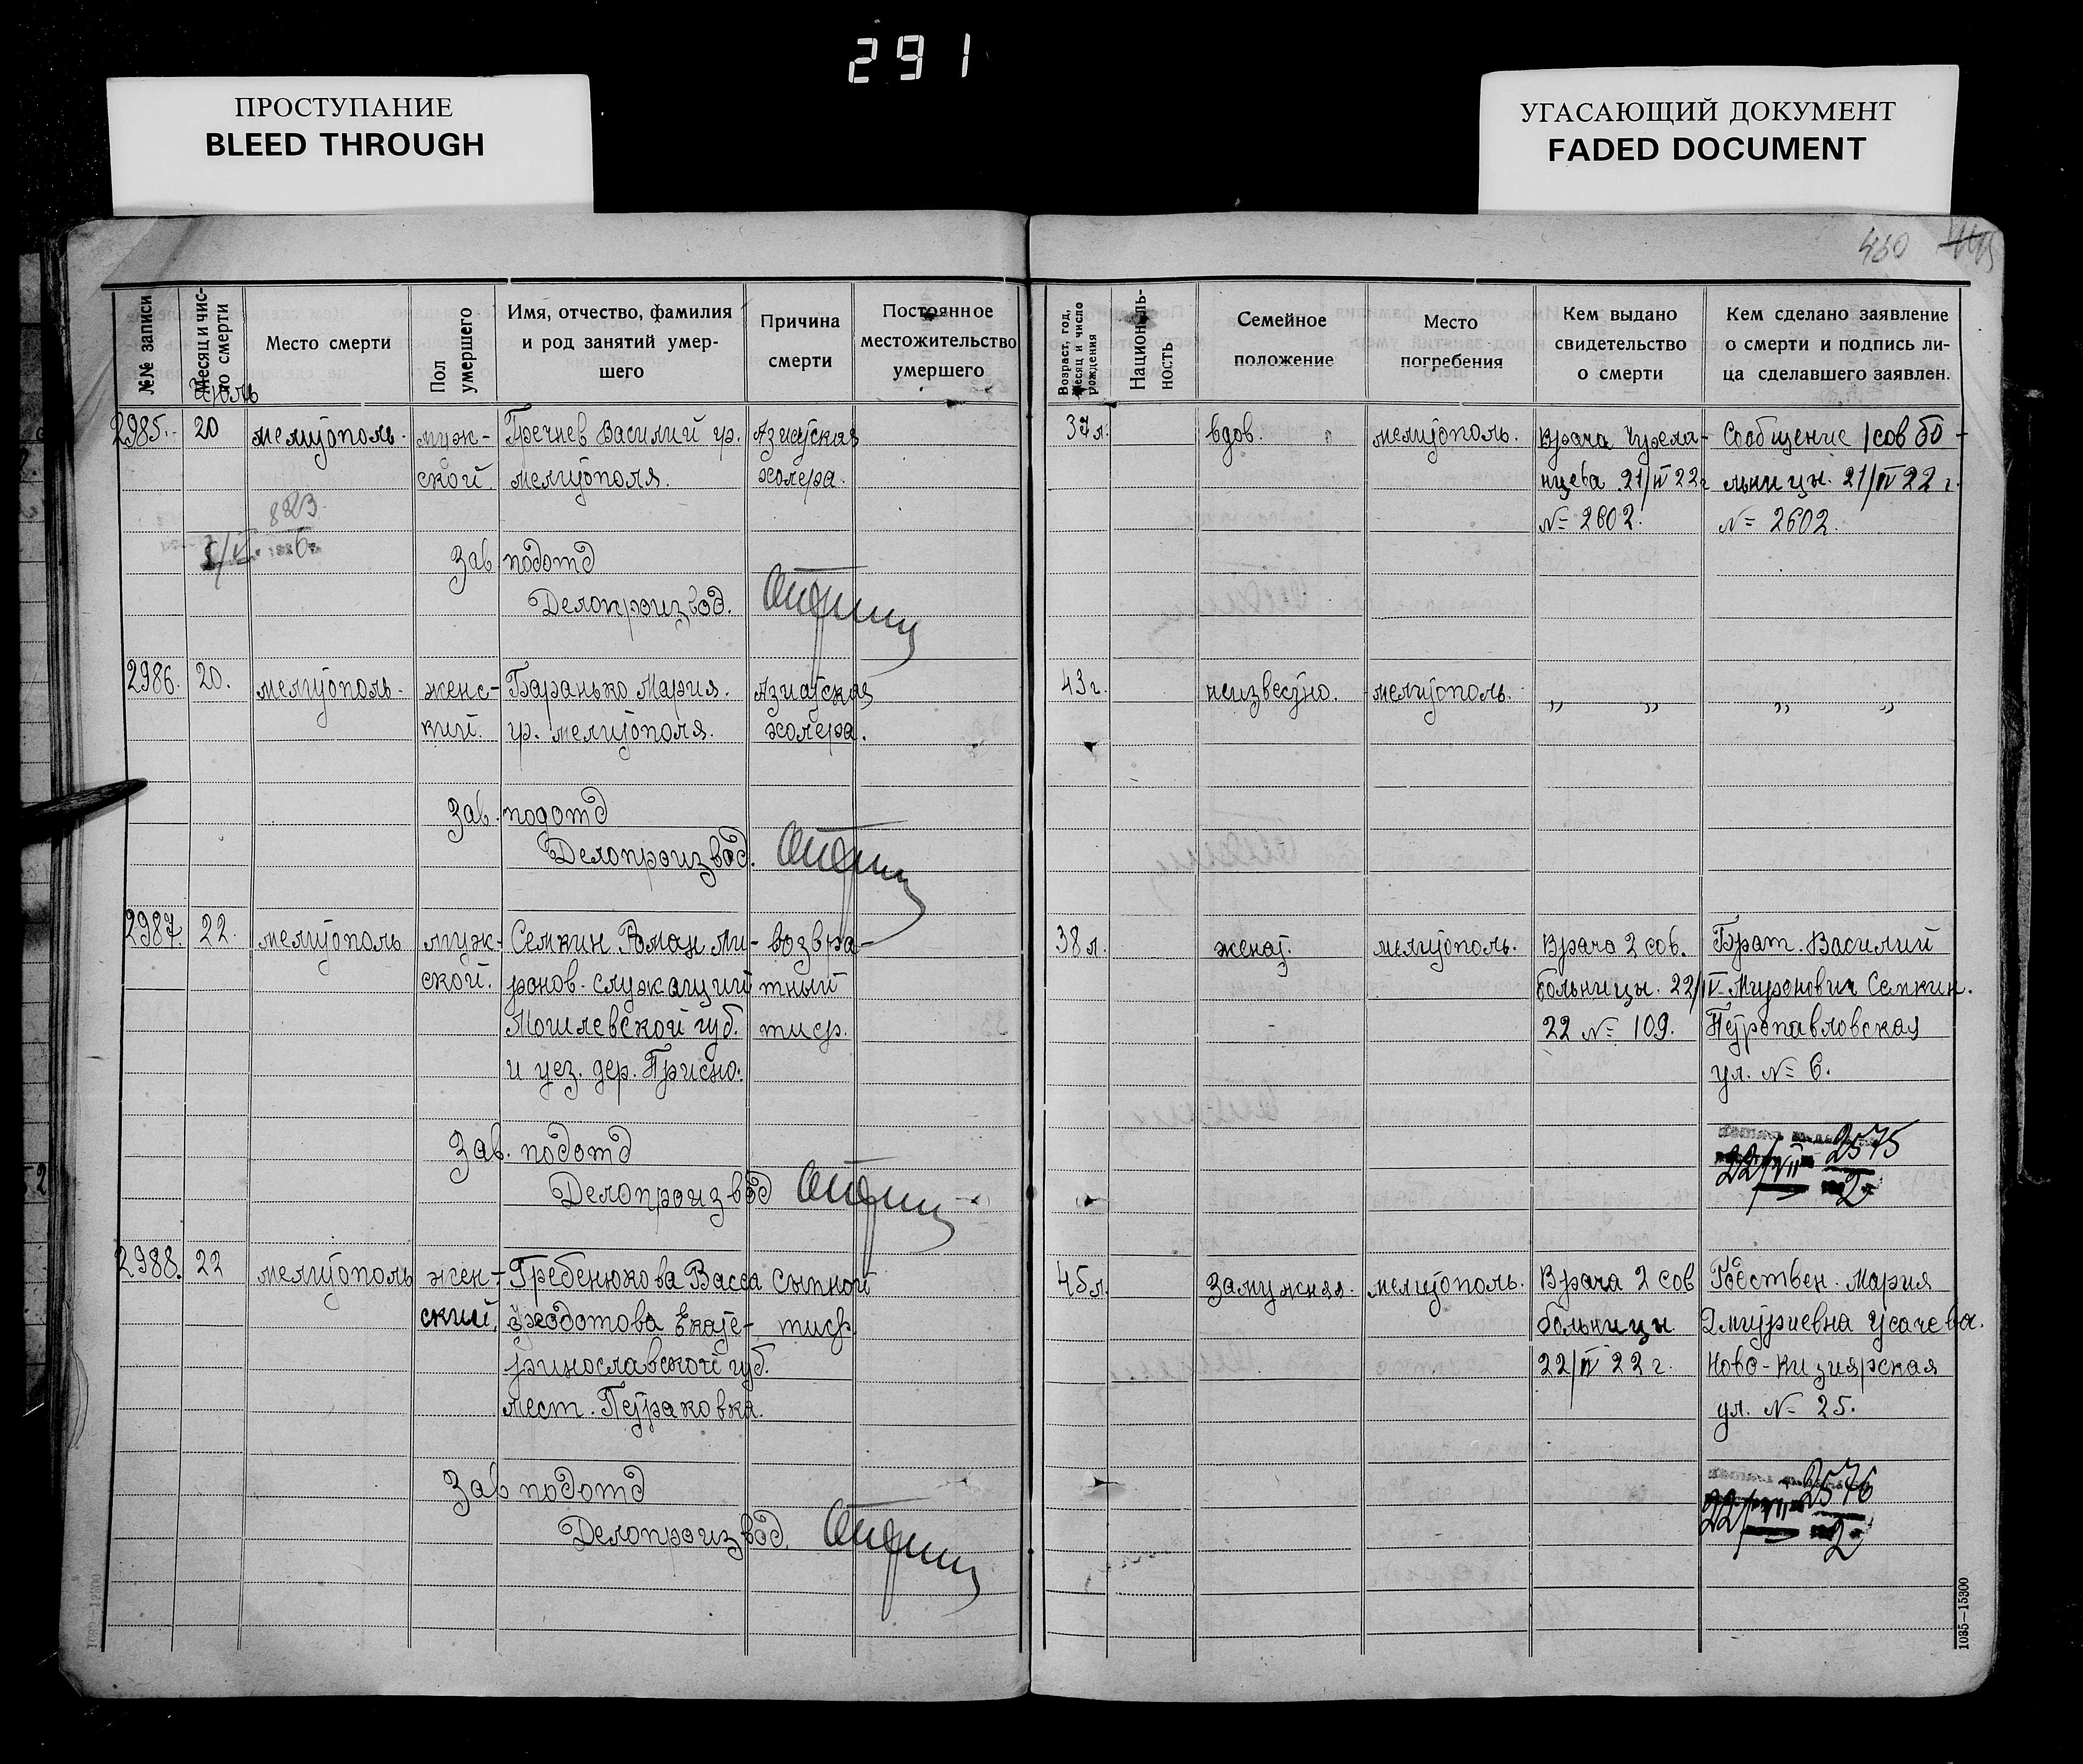 291
ПРОСТУПАНИЕ
BLEED THROUGH
УГАСАЮЩИЙ ДОКУМЕНТ
FADED DOCUMENT
430
№№ записи
Месяц и чис-
ло смерти
Место смерти
Пол
умершего
Имя, отчество, фамилия
и род занятий умер-
шего
Причина
смерти
Постоянное
местожительство
умершего
Возраст, год,
месяц и число
рождения
Националь-
ность
Семейное
положение
Место
погребения
Кем выдано
свидетельство
о смерти
Кем сделано заявление
о смерти и подпись ли-
ца сделавшего заявлен.
2985. 20 Мелитополь. муж- Гречнев Василий гр. Азиатская 37 л. вдов. Мелитополь. Врача Сообщение 1 сов бо-
ской. Мелитополя. холера. 21/IV 22 г. льницы. 21/IV 22 г.
823 № 2602. № 2602.
Зав подотд
Делопроизвод.
2986. 20. Мелитополь. женс- Баранько Мария. Азиатская 43 г. неизвестно. Мелитополь. „ „ „ „
кий. гр. Мелитополя. холера.
Зав. подотд
Делопроизвод.
2987. 22. Мелитополь муж- Семкин Роман Ми- возвра- 38 л. женат. Мелитополь. Врача 2 сов. Брат. Василий
ской. ронов. служащий тный больницы. 22/IV Миронович Семкин.
Могилевской губ. тиф. 22 № 109. Петропавловская
и уез. дер. Присно. ул. № 6.
Зав. подотд 22/VII 2575
Делопроизвод 2
2988. 22 Мелитополь жен- Гребенюкова Васса Сыпной 45 л. Замужняя. Мелитополь. Врача 2 сов Родствен. Мария
ский. Феодотова Екате- тиф. больницы. Дмитриевна Усачева.
ринославской губ. 22/IV 22 г. Ново-Кизиярская
мест. Петраковка. ул. № 25.
Зав подотд 22/VII 2576
Делопроизвод. 2
1035—15300